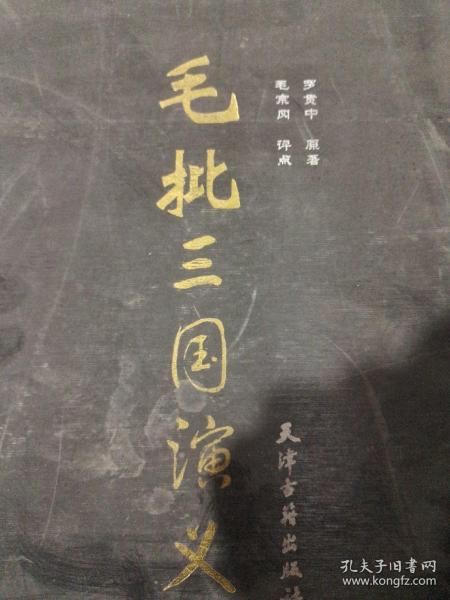 罗贯中 原著
毛宗岗 评点
毛批三国演义
天津古籍出版社
孔夫子旧书网
www.kongfz.com